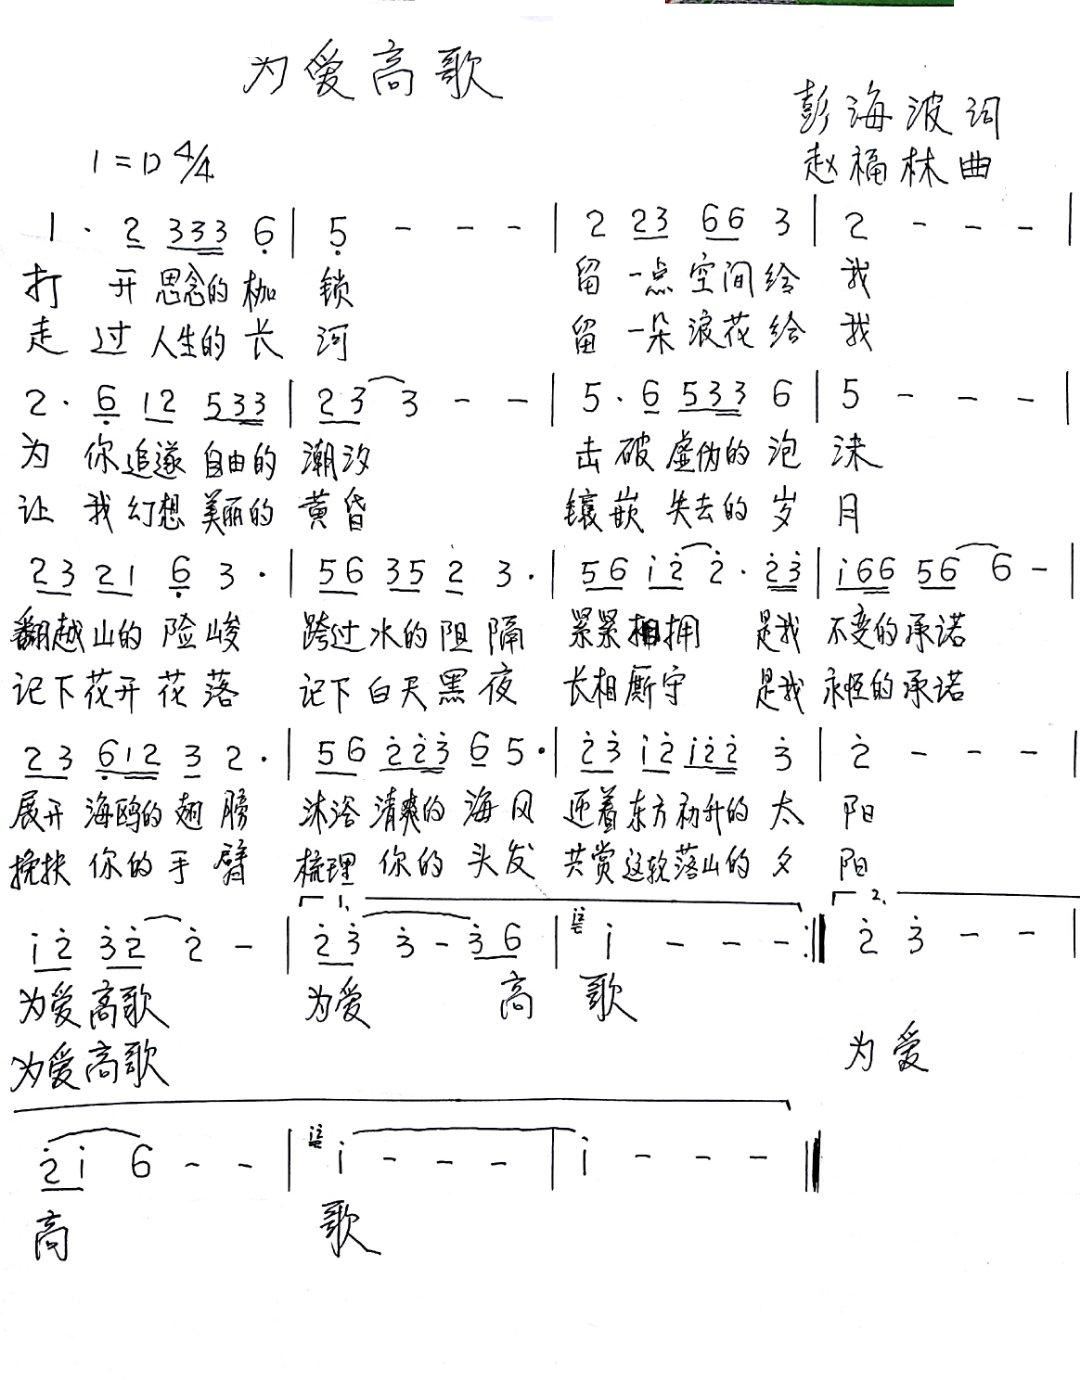 为爱高歌
彭海波词
1=D 4/4
赵福林曲
1· 2 333 6 | 5 - - - | 2 23 66 3 | 2 - - - |
打 开 思念的 枷 锁 留 一点 空间 给 我
走 过 人生的 长 河 留 一朵 浪花 给 我
2· 6 12 533 | 23 3 - - | 5· 6 533 6 | 5 - - - |
为 你 追逐 自由的 潮汐 击 破 虚伪的 泡 沫
让 我 幻想 美丽的 黄昏 镶 嵌 失去的 岁 月
23 21 6 3· | 56 35 2 3· | 56 i2̇ 2̇· 2̇3̇ | i66 56 6 - |
翻越 山的 险 峻 跨过 水的 阻 隔 紧紧 相拥 是我 不变的 承诺
记下 花开 花 落 记下 白天 黑 夜 长相 厮守 是我 永恒的 承诺
23 612 3 2· | 56 2̇2̇3̇ 6 5· | 2̇3̇ i2̇ i2̇2̇ 3̇ | 2̇ - - - |
展开 海鸥的 翅 膀 沐浴 清爽的 海 风 迎着 东方 初升的 太 阳
挽抉 你的 手 臂 梳理 你的 头 发 共赏 这轮 落山的 夕 阳
1. 2.
i2̇ 3̇2̇ 2̇ - | 2̇3̇ 3̇ - 3̇6 | i - - - :| 2̇ 3̇ - - |
为爱 高歌 为爱 高 歌
为爱 高歌 为 爱
2̇i 6 - - | i - - - | i - - - ‖
高 歌